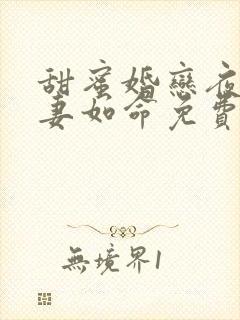 甜蜜婚戀夜
妻如命免費
無境界1